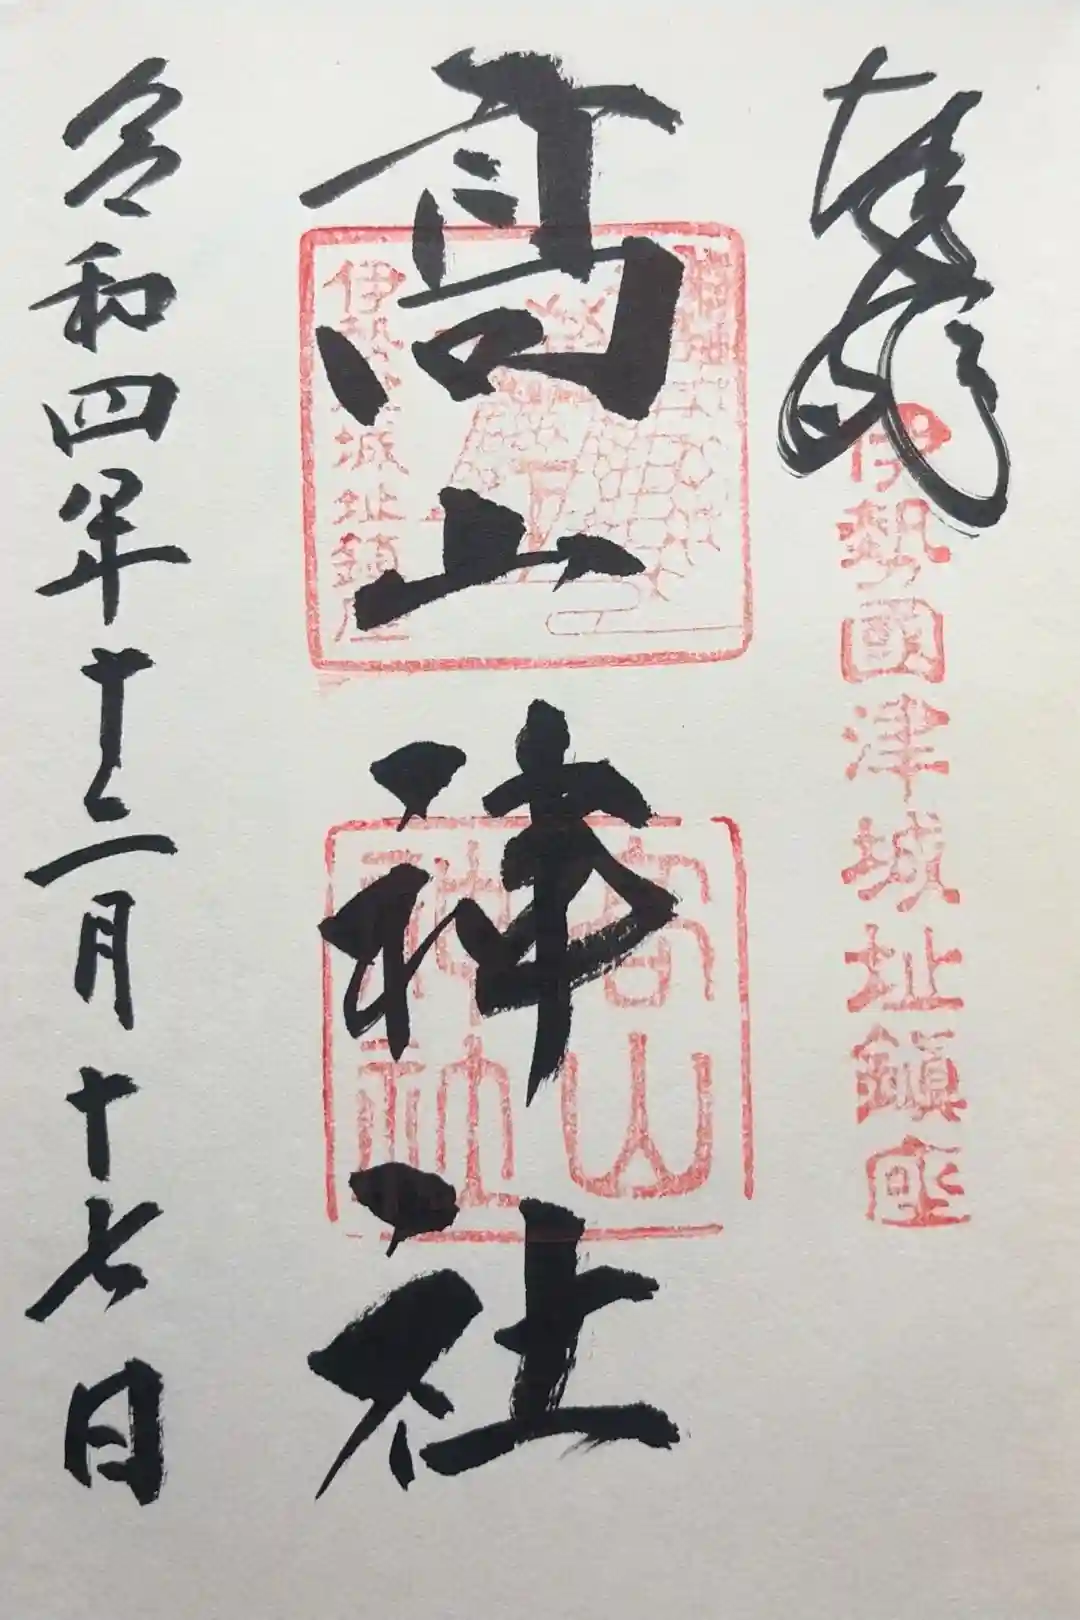 奉拝
伊勢國津城址鎮座
高山神社
伊勢津城址鎮座
高山
神社
令和四年十二月十七日